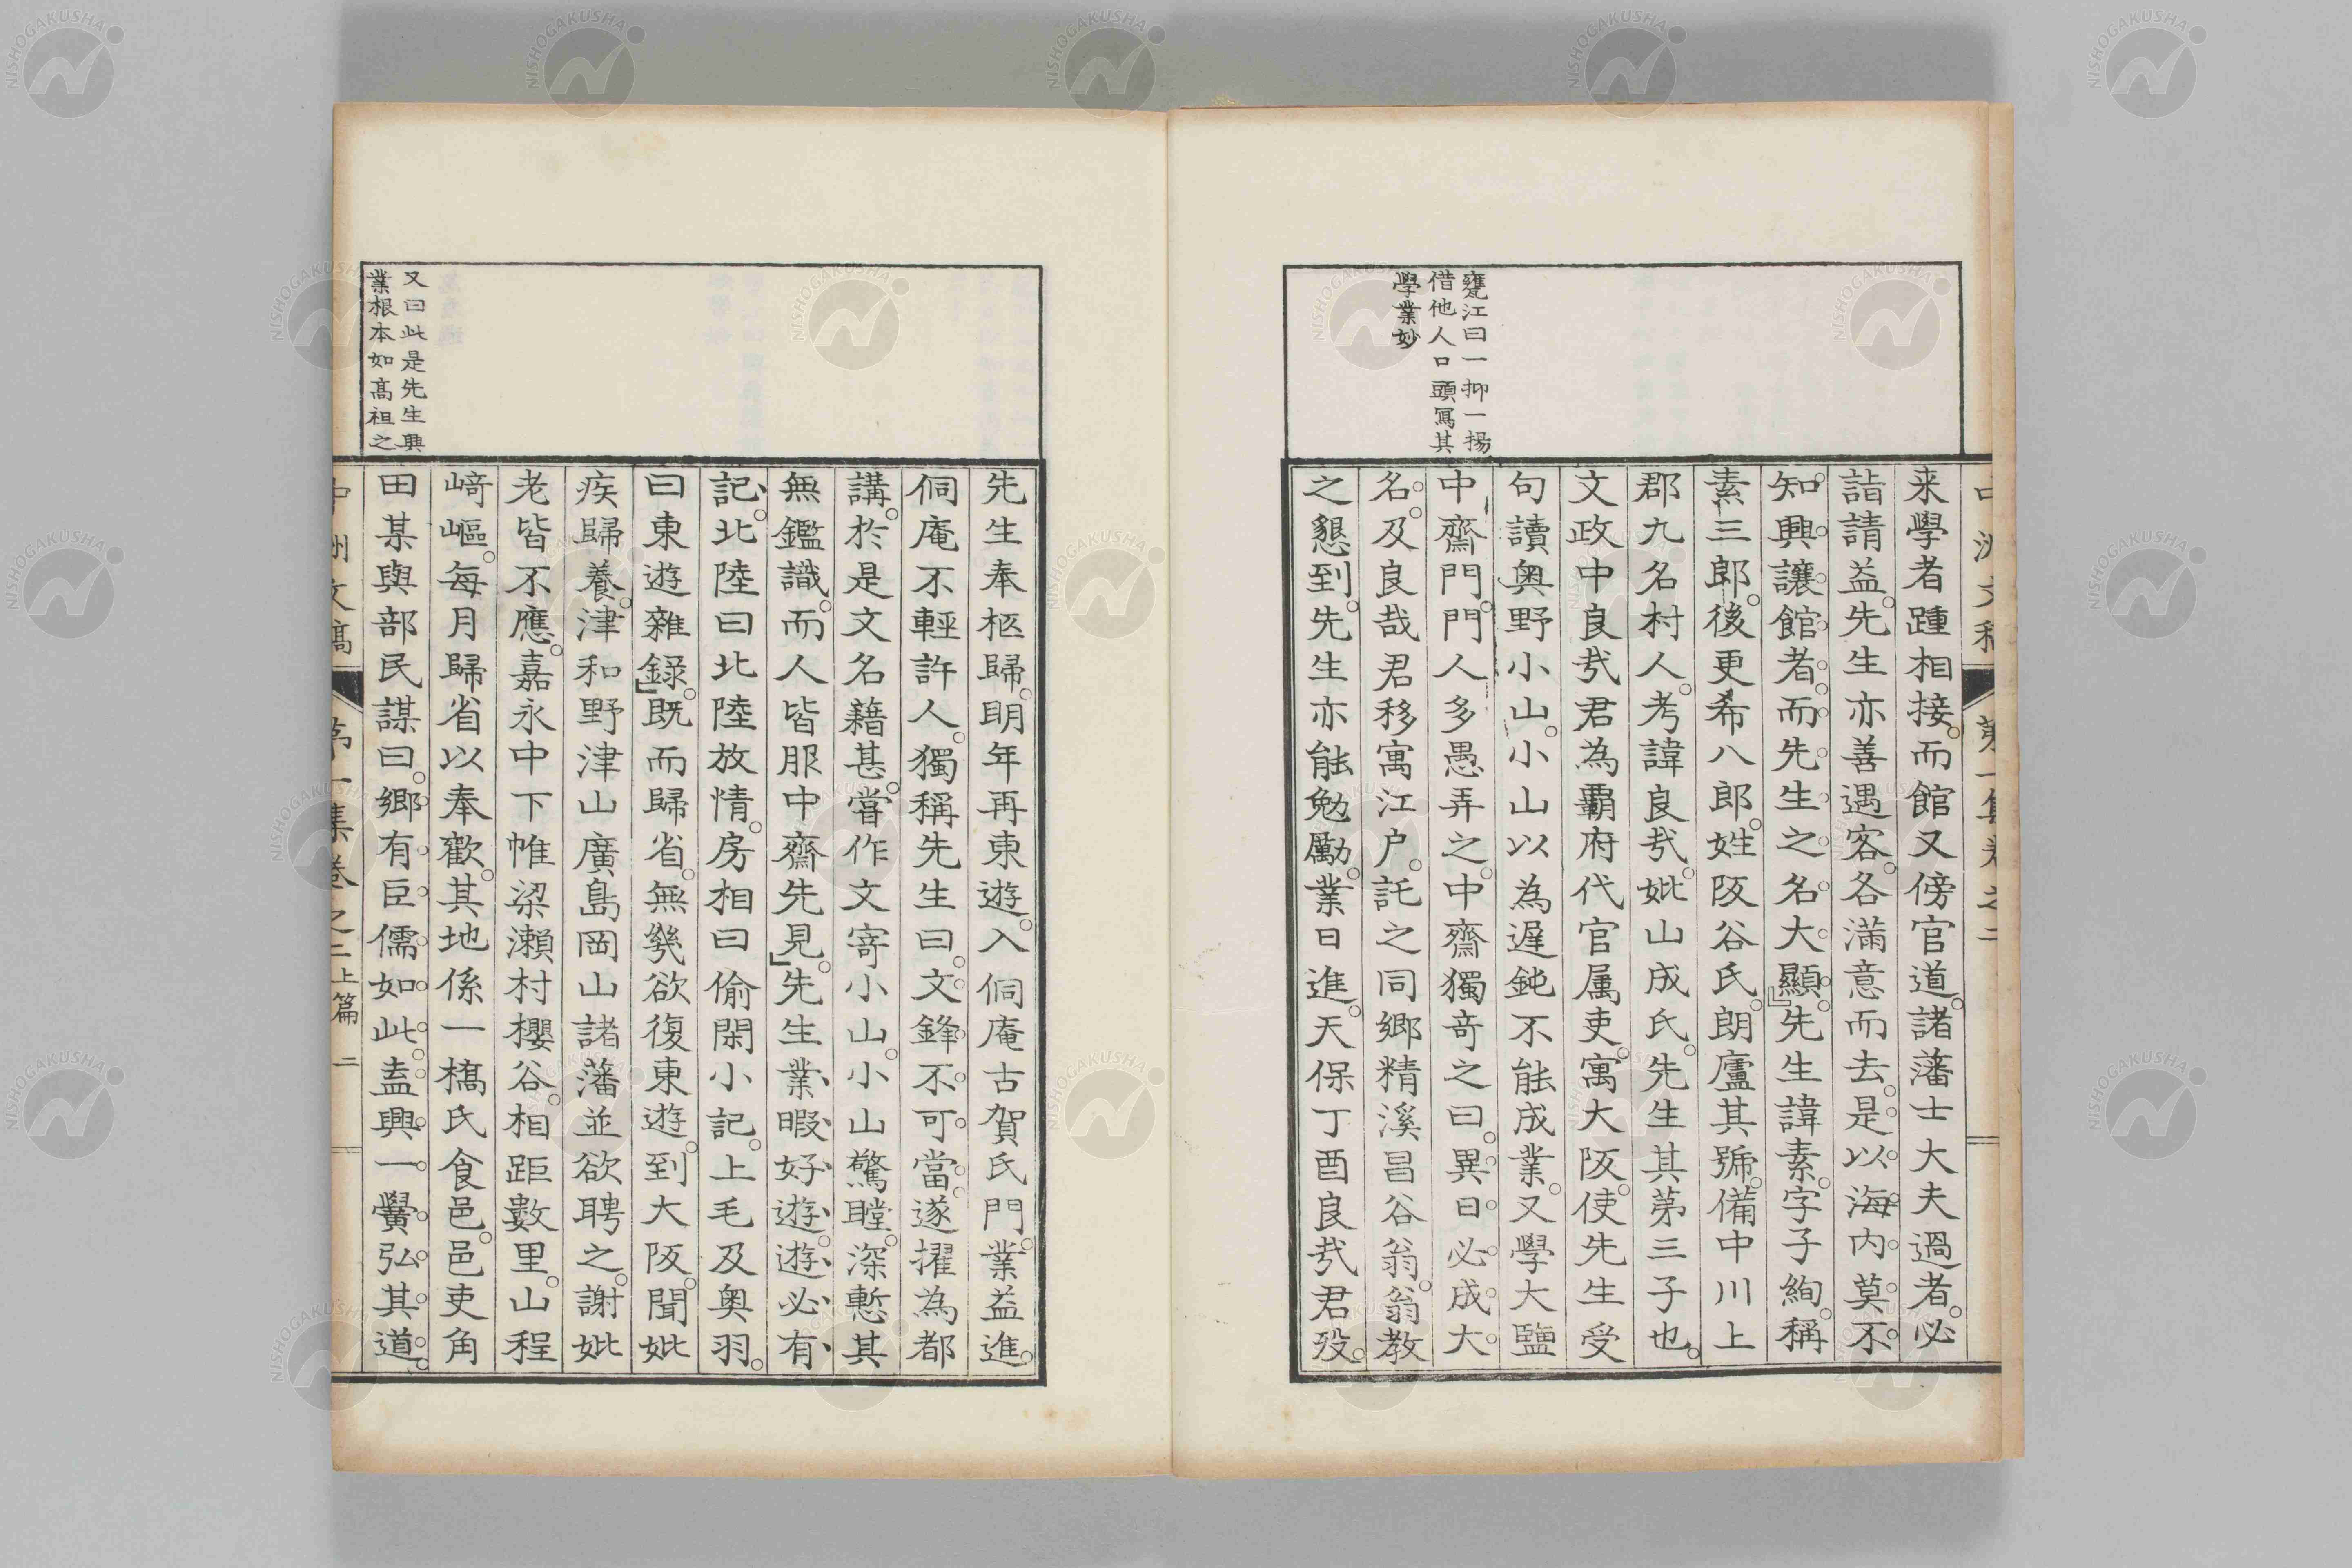 甕江曰一抑一揚
借他人口頭寫其
學業妙
来學者踵相接。而館又傍官道。諸藩士大夫過者。必
詣請益。先生亦善遇客。各滿意而去。是以海内莫不
知興讓館者。而先生之名大顯。』先生諱素。字子絢。稱
素三郎。後更希八郎。姓阪谷氏。朗廬其號。備中川上
郡九名村人。考諱良哉。妣山成氏。先生其第三子也。
文政中良哉君為霸府代官属吏。寓大阪。使先生受
句讀奥野小山。小山以為遅鈍不能成業。又學大鹽
中齋門。門人多愚弄之。中齋獨竒之曰。異日必成大
名。及良哉君移寓江户。託之同郷精溪昌谷翁。翁教
之懇到。先生亦能勉勵。業日進。天保丁酉良哉君歿。
先生奉柩歸。明年再東遊。入侗庵古賀氏門。業益進。
侗庵不輕許人。獨稱先生曰。文鋒不可當。遂擢為都
講。於是文名藉甚。嘗作文寄小山。小山驚瞠。深慙其
無鑑識。而人皆服中齋先見。』先生業暇好遊。遊必有
記。北陸曰北陸放情。房相曰偷閑小記。上毛及奥羽。
曰東遊雜録。』既而歸省。無幾欲復東遊。到大阪。聞妣
疾歸養。津和野津山廣島岡山諸藩並欲聘之。謝妣
老皆不應。嘉永中下帷梁瀬村櫻谷。相距數里。山程
崎嶇。每月歸省以奉歡。其地係一橋氏食邑。邑吏角
田某與部民謀曰。郷有巨儒如此。盍興一黌弘其道。
又曰此是先生興
業根本如髙祖之
中洲文稿 第一集卷之二上篇 二